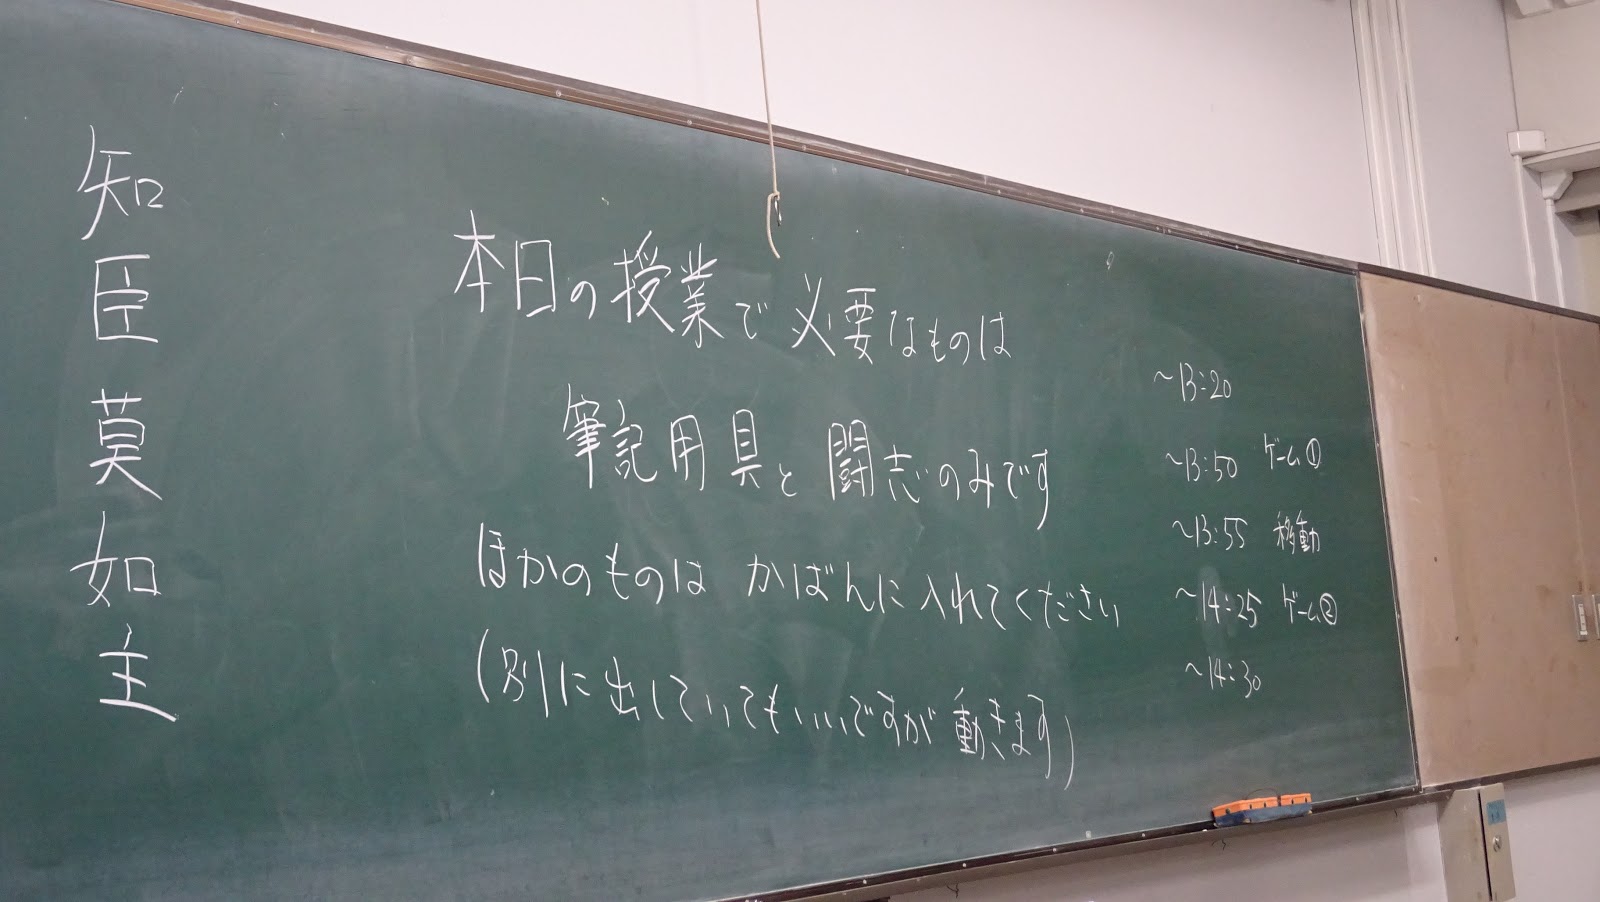 知臣莫如主
本日の授業で必要なものは
筆記用具と闘志のみです
ほかのものは かばんに入れてください
(別に出していてもいいですが動きます)
～13:20
～13:50 ゲーム①
～13:55 移動
～14:25 ゲーム②
～14:30